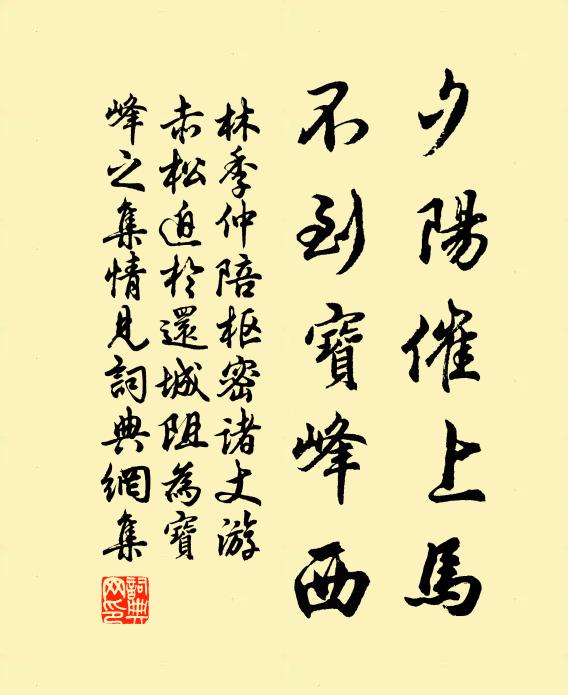 夕陽催上馬
不到寶峰西
林季仲陪枢密诸丈游
赤松迫於還城阻為寶
峰之集情見詞典網集
詞典
网印